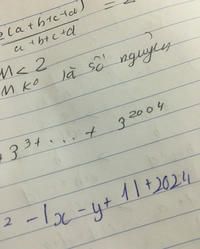 2(a+b+c+d)
a+b+c+d
M < 2
M k° là số nguyên
+ 3³ + ... + 3²⁰⁰⁴
² - |x - y + 1| + 2024